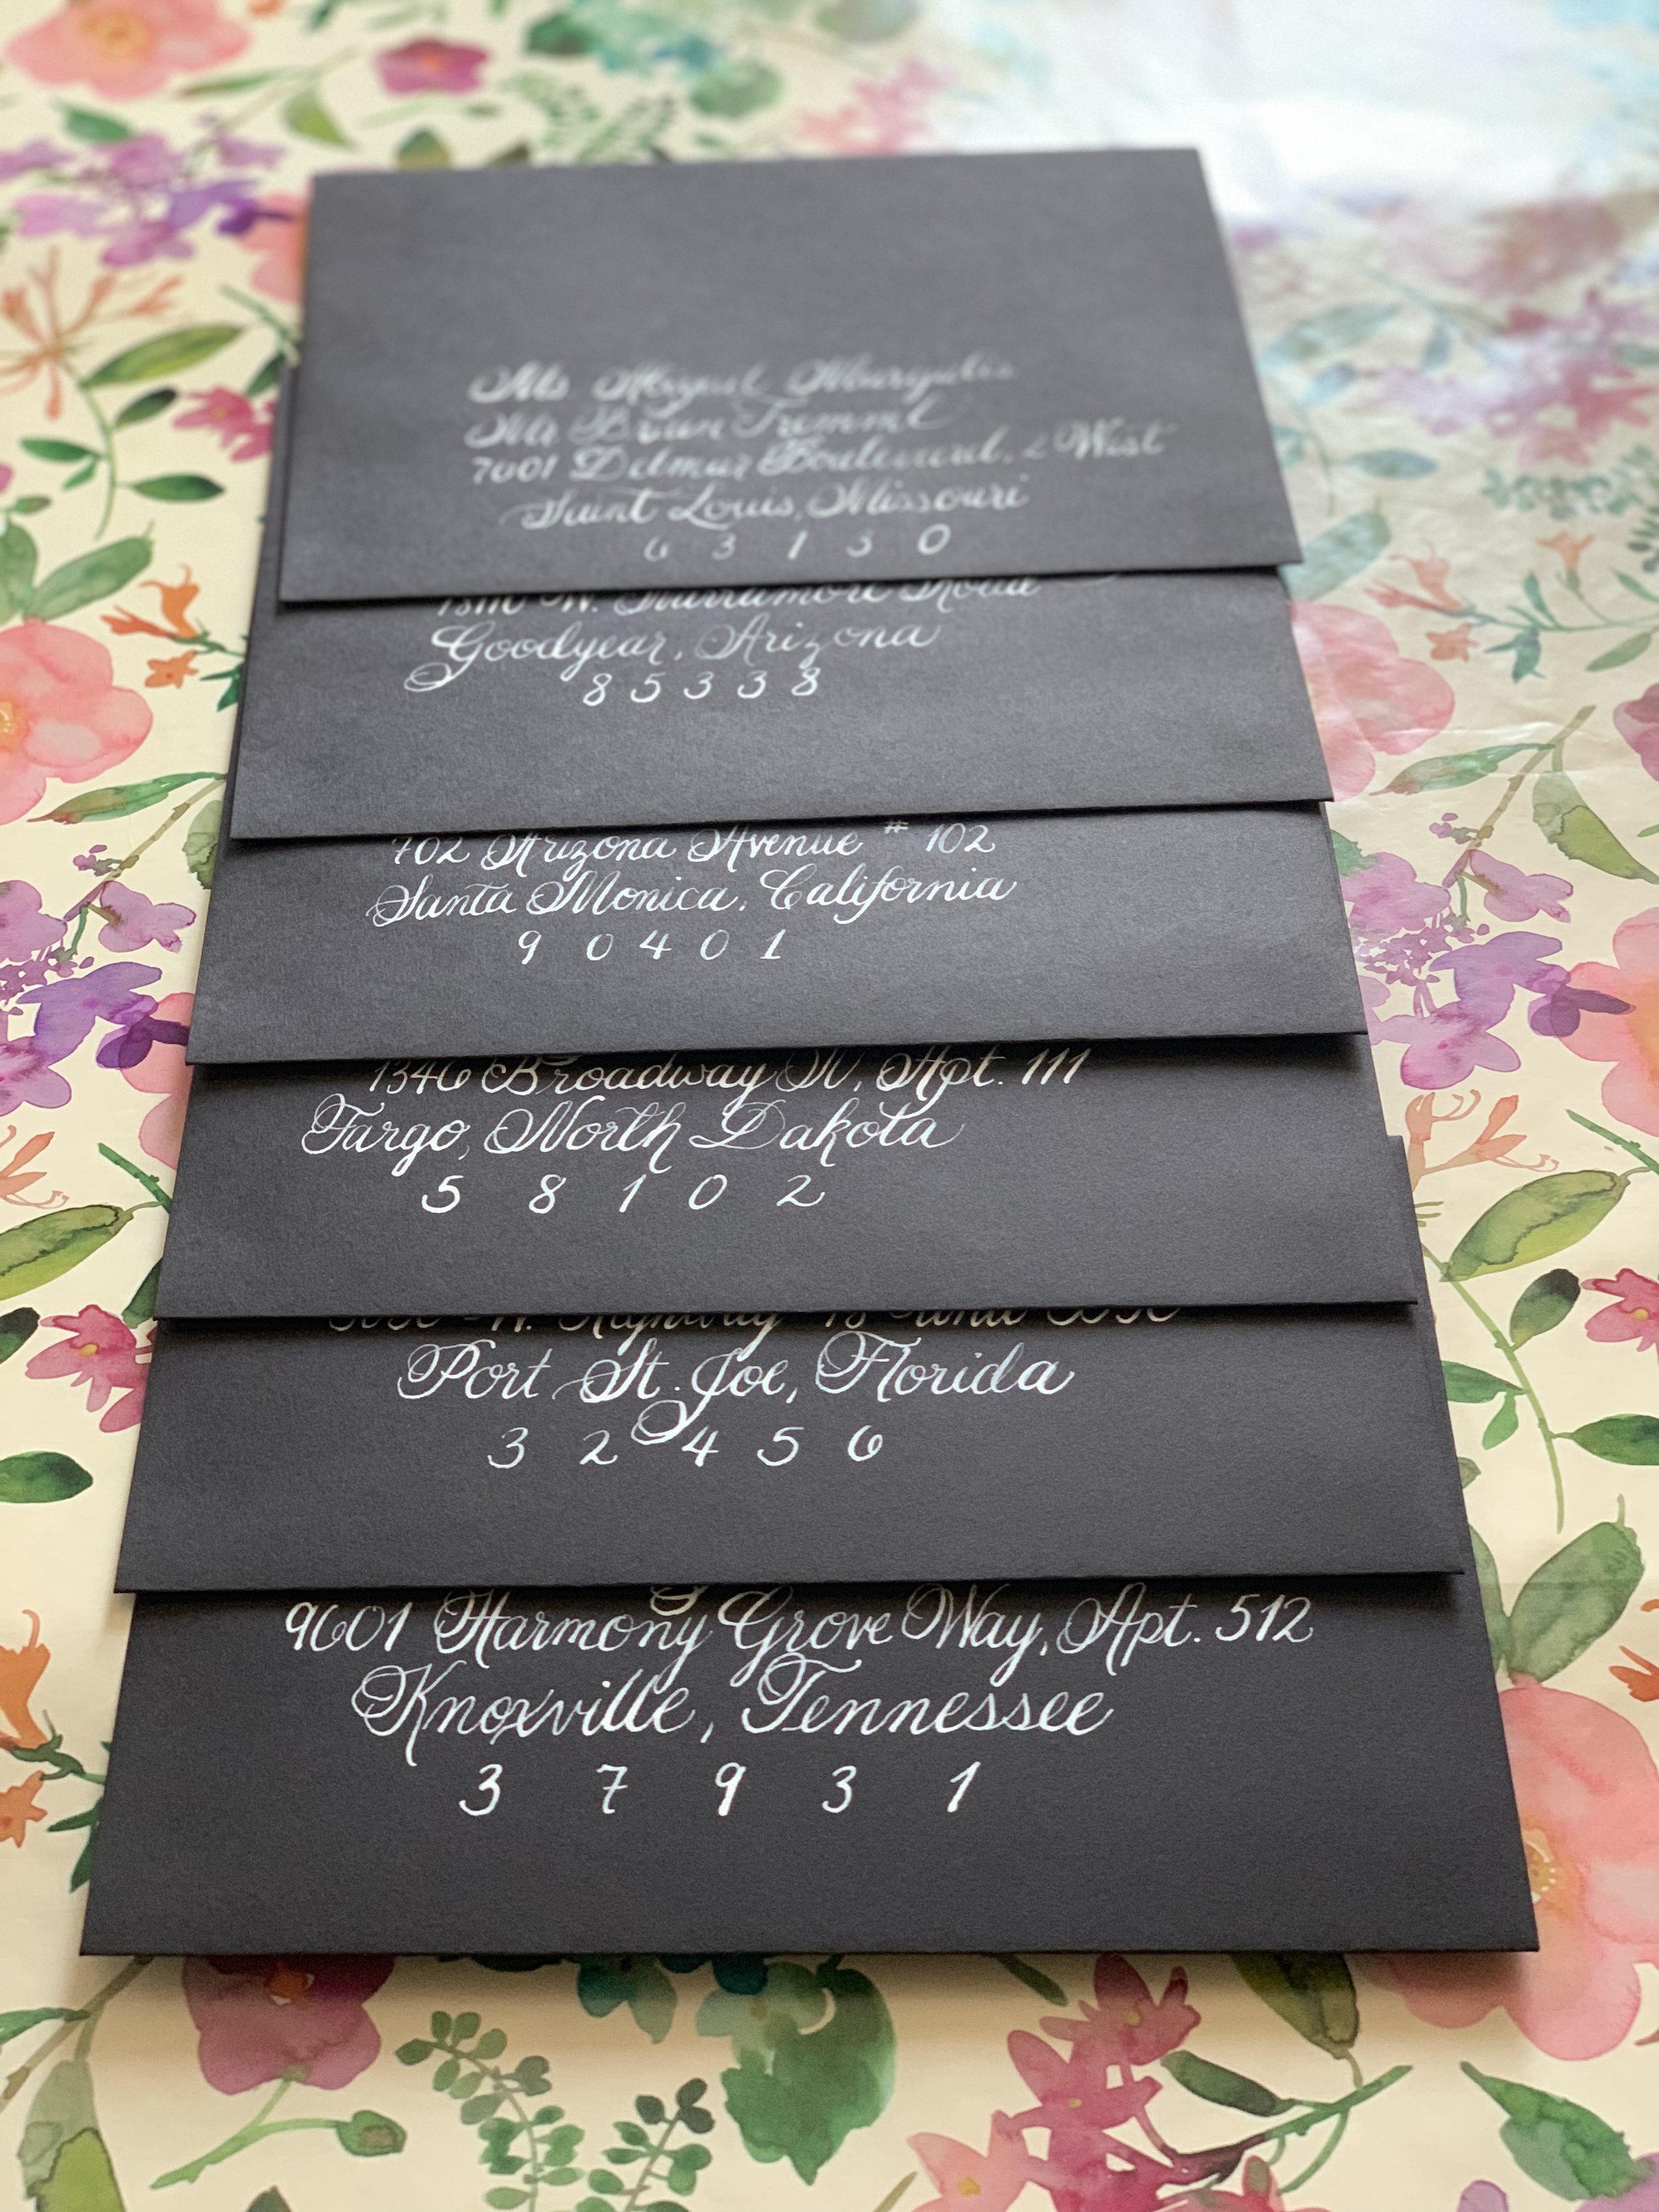 Ms Abigail Margulis
Mr Brian Tremml
7601 Delmar Boulevard, 2 West
Saint Louis, Missouri
6 3 1 3 0
W. Road
Goodyear, Arizona
8 5 3 3 8
702 Arizona Avenue # 102
Santa Monica, California
9 0 4 0 1
1346 Broadway N, Apt. 111
Fargo, North Dakota
5 8 1 0 2
Highway
Port St. Joe, Florida
3 2 4 5 6
9601 Harmony Grove Way, Apt. 512
Knoxville, Tennessee
3 7 9 3 1